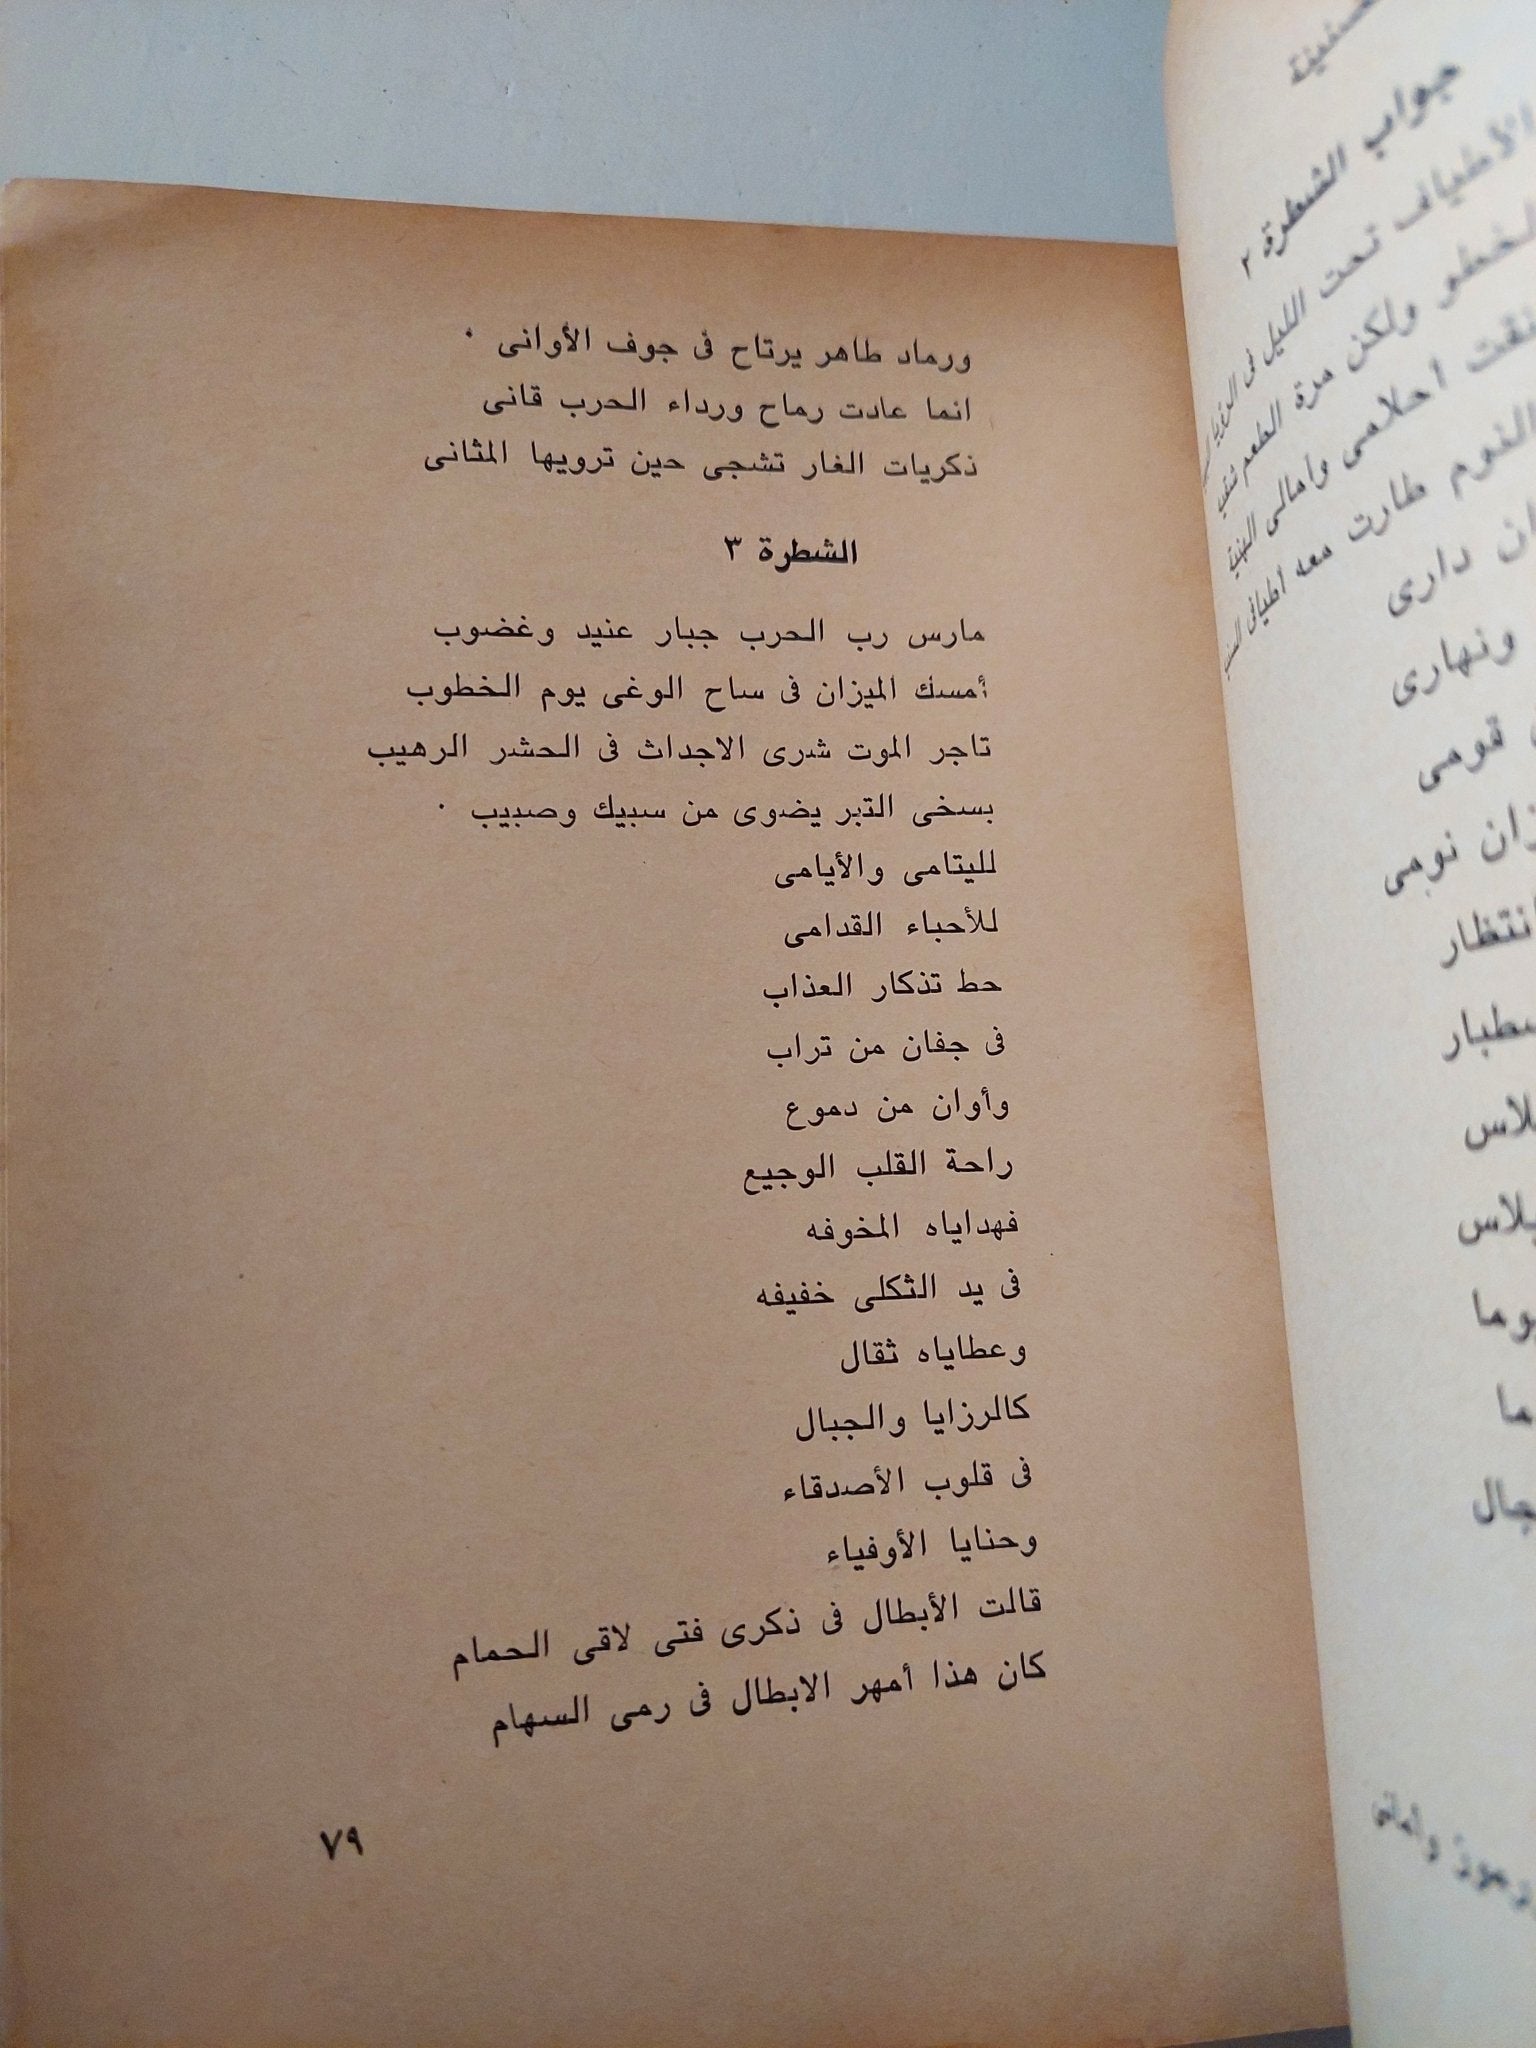 ورماد طاهر يرتاح فى جوف الأوانى ٠
انما عادت رماح ورداء الحرب قانى
ذكريات الغار تشجى حين ترويها المثانى
الشطرة ٣
مارس رب الحرب جبار عنيد وغضوب
أمسك الميزان فى ساح الوغى يوم الخطوب
تاجر الموت شرى الاجداث فى الحشر الرهيب
بسخى التبر يضوى من سبيك وصبيب ٠
لليتامى والأيامى
للأحباء القدامى
حط تذكار العذاب
فى جفان من تراب
وأوان من دموع
راحة القلب الوجيع
فهداياه المخوفه
فى يد الثكلى خفيفه
وعطاياه ثقال
كالرزايا والجبال
فى قلوب الأصدقاء
وحنايا الأوفياء
قالت الأبطال فى ذكرى فتى لاقى الحمام
كان هذا أمهر الابطال فى رمى السهام
٧٩
جواب الشطرة ٢
الأطياف تحت الليل فى
ولكن مرة الطعم
أحلامى وآمالى
النوم طارت معه أطيافى
دارى
ونهارى
قومى
نومى